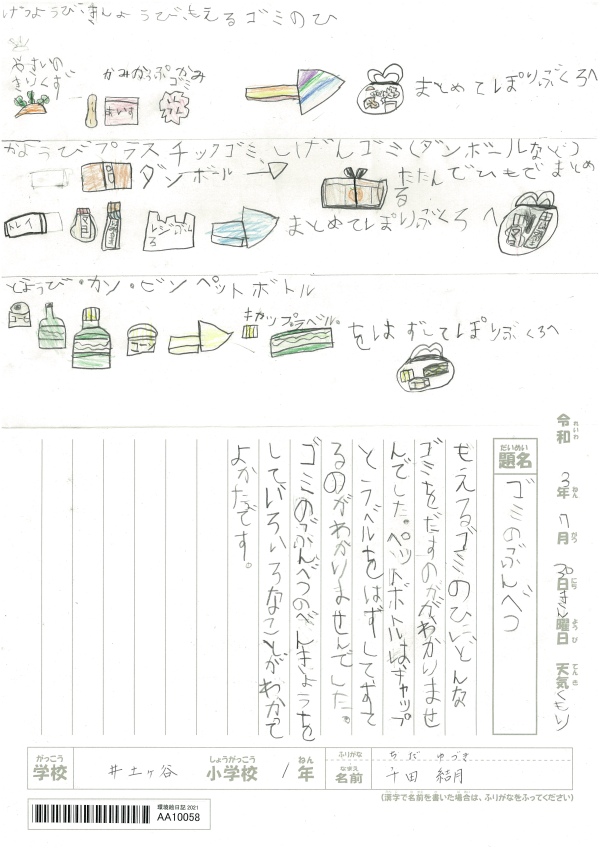 げつようび・きんようびもえるゴミのひ
やさいの
きりくず
かみかっぷ
かみ
ゴミ
あいす
まとめてぽりぶくろへ
かようびプラスチックゴミ、しげんゴミ(ダンボールなど)
ダンボール
たたんでひもでまとめ
る
トレイ
レジぶくろ
まとめてぽりぶくろへ
どようび・カン・ビンペットボトル
コーヒ
コーン
キャップラベル
をはずしてぽりぶくろへ
令和 3年 7月 30日 きん曜日 天気 くもり
れいわ ねん がつ にち ようび てんき
だいめい
題名
ゴミのぶんべつ
もえるゴミのひにどんな
ゴミをだすのかがわかりませ
んでした。ペットボトルはキャップ
とラベルをはずしてすて
るのがわかりませんでした。
ゴミのぶんべつのべんきょうを
していろいろなことがわかて
よかたです。
がっこう しょうがっこう ねん ふりがな ちだ ゆづき
学校 井土ヶ谷 小学校 1年 なまえ 名前 千田 結月
(漢字で名前を書いた場合は、ふりがなをふってください)
環境絵日記2021
AA10058